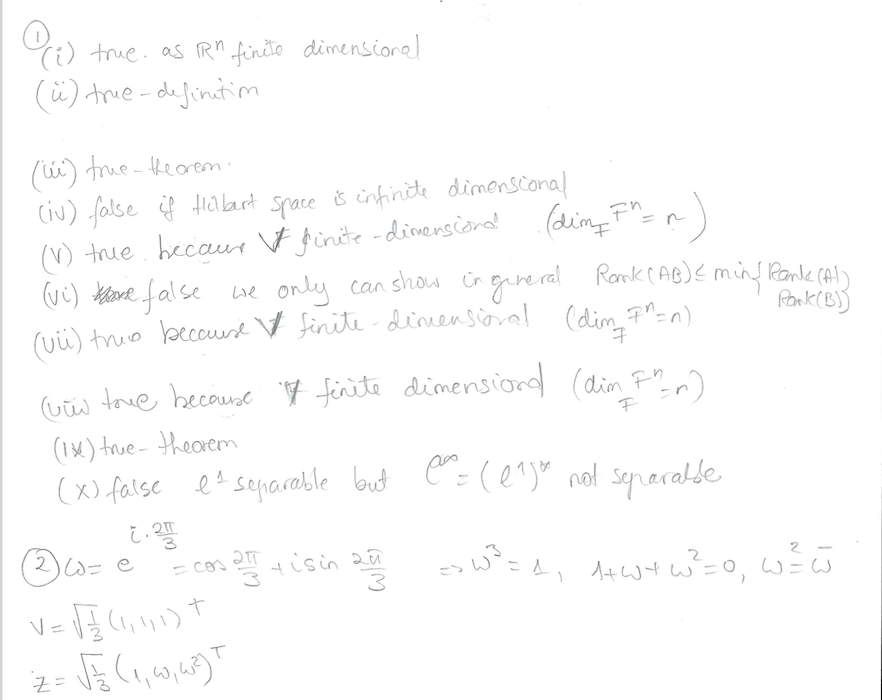 ①
(i) true. as ℝⁿ finite dimensional
(ii) true - definition
(iii) true - theorem.
(iv) false if Hilbert space is infinite dimensional
(v) true because V finite-dimensional (dim_F Fⁿ = n)
(vi) false we only can show in general Rank(AB) ≤ min{Rank(A), Rank(B)}
(vii) true because V finite-dimensional (dim_F Fⁿ = n)
(viii) true because V finite dimensional (dim_F Fⁿ = n)
(ix) true - theorem
(x) false ℓ¹ separable but ℓ^∞ = (ℓ¹)* not separable
② ω = e^{i·2π/3} = cos 2π/3 + i sin 2π/3 => ω³ = 1, 1+ω+ω² = 0, ω² = ω̄
v = √(1/3) (1,1,1)ᵀ
z = √(1/3) (1,ω,ω²)ᵀ